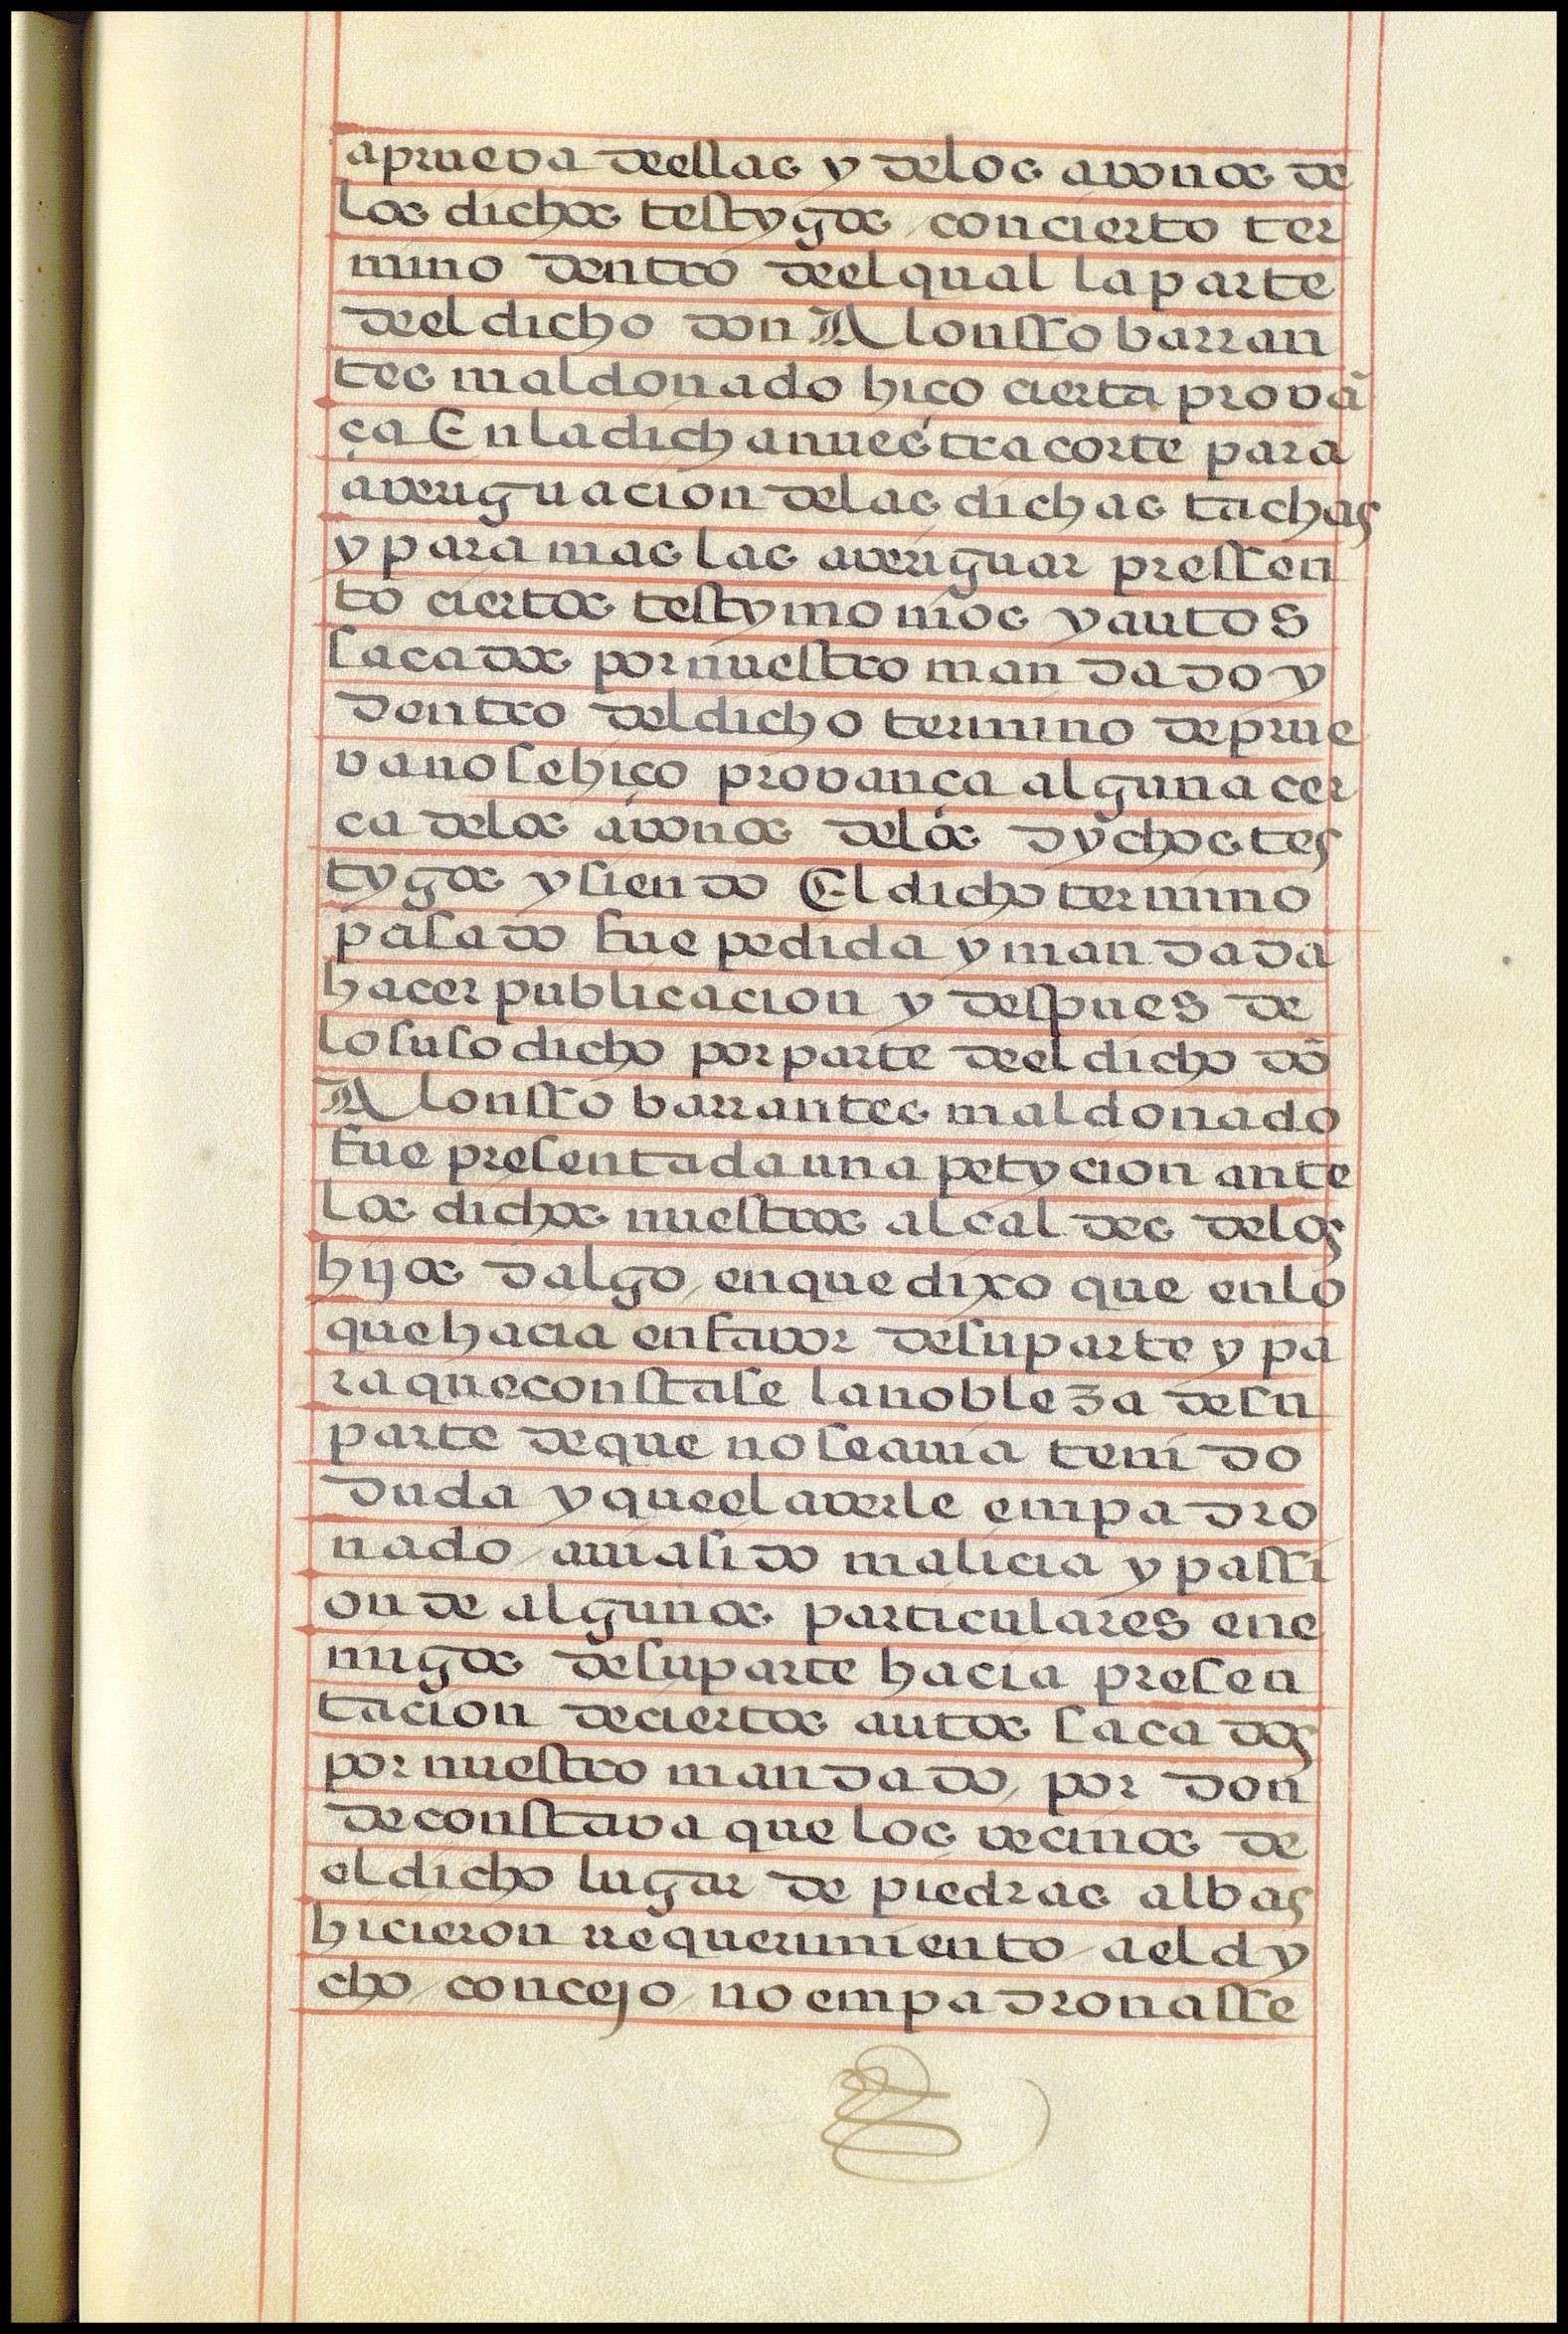 aprueva deellas y delos avonos de
los dichos testygos / concierto ter
mino dentro deelqual la parte
deel dicho don Alonsso barran
tes maldonado hiço cierta provã
ça En la dicha nuestra corte para
averiguacion delas dichas tachas
y para mas las averiguar pressen
to ciertos testymonios y autos
sacados por nuestro mandado y
dentro del dicho termino de prue
va no se hiço provança alguna cer
ca delos avonos delos dychos tes
tygos y siendo El dicho termino
pasado fue pedida y mandada
hacer publicacion y despues de
lo suso dicho por parte deel dicho dõ
Alonsso barrantes maldonado
fue presentada una petycion ante
los dichos nuestros alcaldes delos
hijos dalgo / en que dixo que en lo
que hacia en favor de su parte y pa
ra que constase la nobleza de su
parte de que no se avia tenido
duda y que el averle empadro
nado / avia sido malicia y passi
on de algunos particulares ene
migos de su parte hacia presen
tacion de ciertos autos sacados
por nuestro mandado / por don
de constava que los vecinos de
el dicho lugar de piedras albas
hicieron requerimiento / a el dy
cho / concejo / no empadronasse